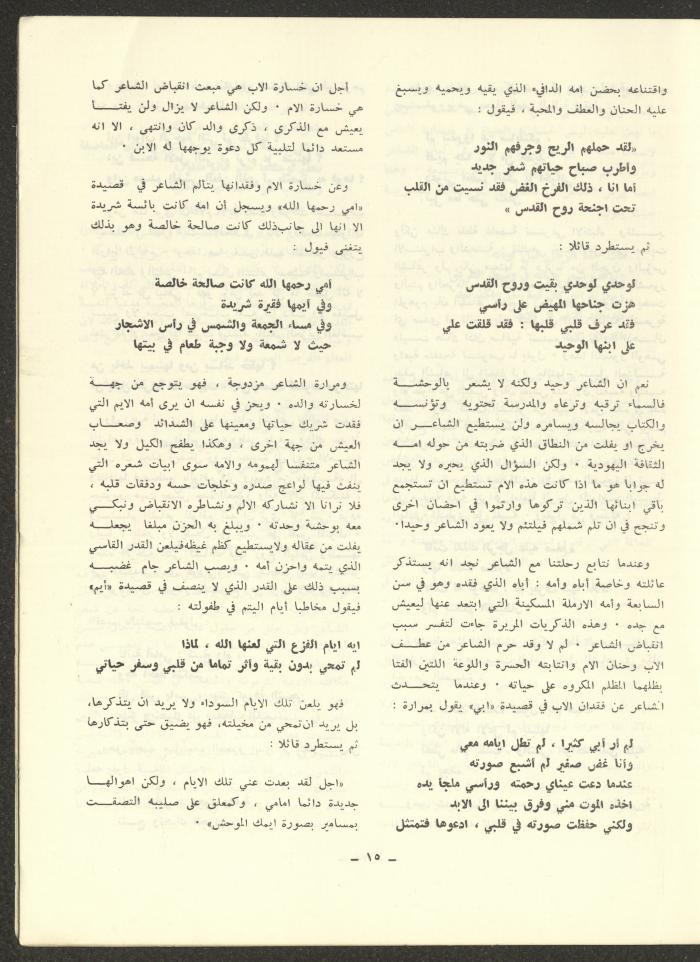 واقتناعه بحضن امه الدافيء الذي يقيه ويحميه ويسبغ
عليه الحنان والعطف والمحبة ، فيقول :
«لقد حملهم الريح وجرفهم النور
واطرب صباح حياتهم شعر جديد
اما انا ، ذلك الفرخ الغض فقد نسيت من القلب
تحت اجنحة روح القدس »
ثم يستطرد قائلا :
لوحدي لوحدي بقيت وروح القدس
هزت جناحها المهيض على رأسي
فقد عرف قلبي قلبها : فقد قلقت علي
على ابنها الوحيد
نعم ان الشاعر وحيد ولكنه لا يشعر بالوحشة
فالسماء ترقبه وترعاه والمدرسة تحتويه وتؤنسه
والكتاب يجالسه ويسامره ولن يستطيع الشاعر ان
يخرج او يفلت من النطاق الذي ضربته من حوله امه
الثقافة اليهودية ٠ ولكن السؤال الذي يحيره ولا يجد
له جوابا هو ما اذا كانت هذه الام تستطيع ان تستجمع
باقي ابنائها الذين تركوها وارتموا في احضان اخرى
وتنجح في ان تلم شملهم فيلتئم ولا يعود الشاعر وحيدا٠
وعندما نتابع رحلتنا مع الشاعر نجد انه يستذكر
عائلته وخاصة أباه وأمه : أباه الذي فقده وهو في سن
السابعة وأمه الارملة المسكينة التي ابتعد عنها ليعيش
مع جده ٠ وهذه الذكريات المريرة جاءت لتفسر سبب
انقباض الشاعر ٠ لم لا وقد حرم الشاعر من عطف
الاب وحنان الام وانتابته الحسرة واللوعة اللتين القتا
بظلهما المظلم المكروه على حياته ٠ وعندما يتحدث
الشاعر عن فقدان الاب في قصيدة «ابي» يقول بمرارة :
لم أر أبي كثيرا ، لم تطل ايامه معي
وأنا غض صغير لم أشبع صورته
عندما دعت عيناي رحمته ورأسي ملجأ يده
اخذه الموت مني وفرق بيننا الى الابد
ولكني حفظت صورته في قلبي ، ادعوها فتمتثل
أجل ان خسارة الاب هي مبعث انقباض الشاعر كما
هي خسارة الام ٠ ولكن الشاعر لا يزال ولن يفتا
يعيش مع الذكرى ، ذكرى والد كان وانتهى ، الا انه
مستعد دائما لتلبية كل دعوة يوجهها له الابن ٠
وعن خسارة الام وفقدانها يتألم الشاعر في قصيدة
«امي رحمها الله» ويسجل أن امه كانت بائسة شريدة
الا انها الى جانبذلك كانت صالحة خالصة وهو بذلك
يتغنى فيول :
أمي رحمها الله كانت صالحة خالصة
وفي أيمها فقيرة شريدة
وفي مساء الجمعة والشمس في رأس الاشجار
حيث لا شمعة ولا وجبة طعام في بيتها
ومرارة الشاعر مزدوجة ، فهو يتوجع من جهة
لخسارته والده ٠ ويحز في نفسه ان يرى أمه الايم التي
فقدت شريك حياتها ومعينها على الشدائد وصعاب
العيش من جهة اخرى ، وهكذا يطفح الكيل ولا يجد
الشاعر متنفسا لهمومه والامه سوى ابيات شعره التي
ينفث فيها لواعج صدره وخلجات حسه ودفقات قلبه ،
فلا نرانا الا نشاركه الالم ونشاطره الانقباض ونبكي
معه بوحشة وحدته ٠ ويبلغ به الحزن مبلغا يجعله
يفلت من عقاله ولايستطيع كظم غيظهفيلعن القدر القاسي
الذي يتمه واحزن أمه ٠ ويصب الشاعر جام غضبه
بسبب ذلك على القدر الذي لا ينصف في قصيدة «أيم»
فيقول مخاطبا أيام اليتم في طفولته :
ايه ايام الفزع التي لعنها الله ، لماذا
لم تمحي بدون بقية وأثر تماما من قلبي وسفر حياتي
فهو يلعن تلك الايام السوداء ولا يريد ان يتذكرها،
بل يريد ان تمحي من مخيلته، فهو يضيق حتى بتذكارها
ثم يستطرد قائلا :
«اجل لقد بعدت عني تلك الايام ، ولكن اهوالها
جديدة دائما امامي ، وكمعلق على صليبه التصقت
بمسامير بصورة ايمك الموحش» ٠
ـ ١٥ ـ